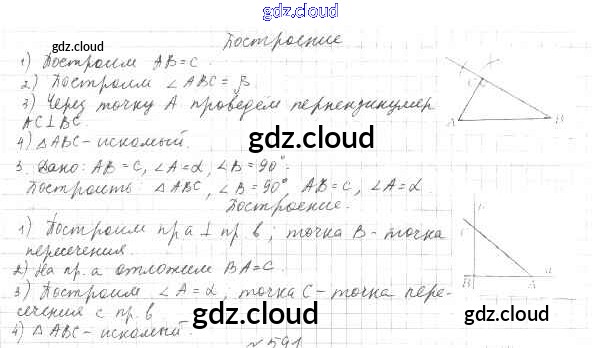 gdz.cloud
gdz.cloud
Построение
1) Построим AB=c.
gdz.cloud
2) Построим ∠ABC=β
3) Через точку A проведём перпендикуляр
AC⊥BC.
4) △ABC-искомый.
gdz.cloud
A B
3. Дано: AB=c, ∠A=α, ∠B=90°.
gdz.cloud
Построить: △ABC, ∠B=90°, AB=c, ∠A=α.
Построение.
1) Построим пр a ⊥ пр b; точка B-точка
пересечения.
2) На пр. a отложим BA=c.
B A
3) Построим ∠A=α, точка C-точка пере-
сечения с пр. b
gdz.cloud
gdz.cloud
4) △ABC-искомый.
№591